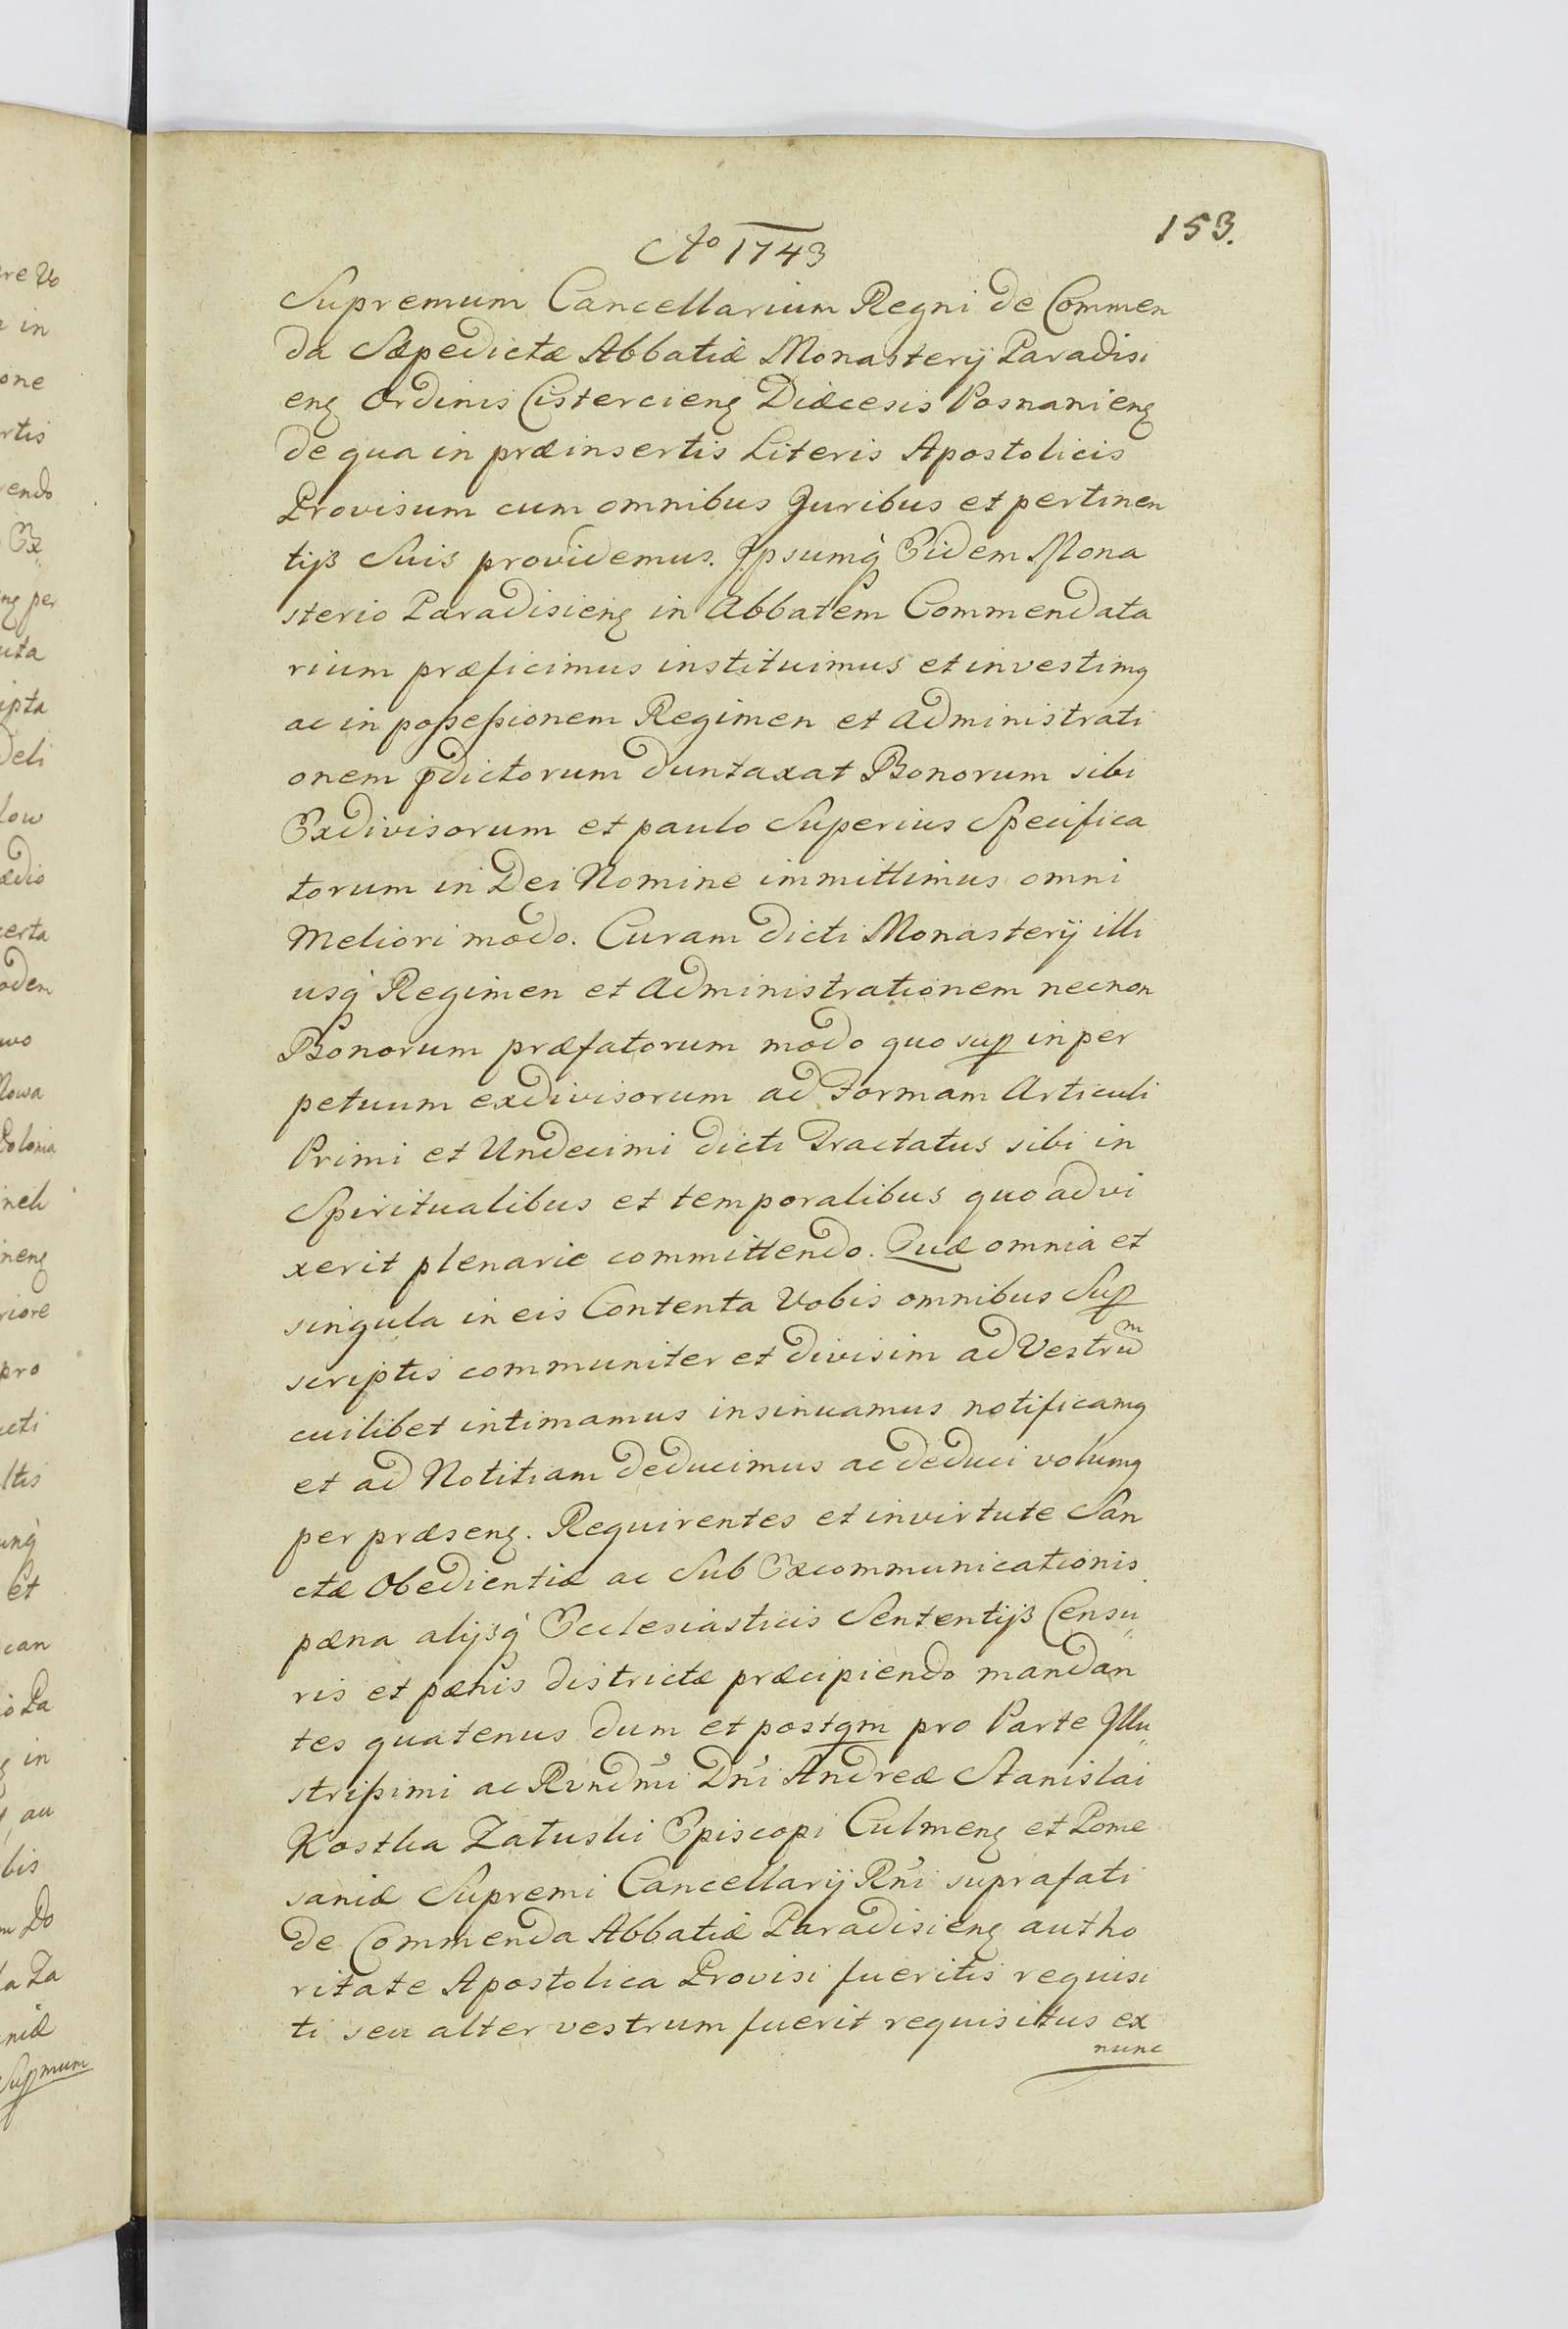 153.
Aō 1743
Supremum Cancellarium Regni de Commen
da Sæpedictæ Abbatiæ Monasterij Paradisi
enȝ Ordinis Cistercienȝ Diæcesis Posnanienȝ
de qua in præinsertis Literis Apostolicis
Provisum cum omnibus Juribus et pertinen
tijß Suis providemus. Ipsumq̀ Eidem Mona
sterio Paradisienȝ in Abbatem Commendata
rium præficimus instituimus et investimꝯ
ac in poßeßionem Regimen et Administrati
onem p̄dictorum duntaxat Bonorum sibi
Exdivisorum et paulo Superius Specifica
torum in Dei Nomine immittimus omni
Meliori modo. Curam dicti Monasterij illi
usq̀ Regimen et Administrationem necnon
Bonorum præfatorum modo quo sup̱ in per
petuum exdivisorum ad Formam Articuli
Primi et Undecimi dicti Tractatus sibi in
Spiritualibus et temporalibus quo ad vi
xerit plenarie committendo. Quæ omnia et
singula in eis Contenta Vobis omnibus Sup̱
scriptis communiter et divisim ad Vestruᵐ
cuilibet intimamus insinuamus notificamꝯ
et ad Notitiam deducimus ac deduci volumꝯ
per præsenȝ. Requirentes et in virtute San
ctæ Obedientiæ ac Sub Excommunicationis
pæna alijßq̀ Ecclesiasticis Sententijß Censu„
ris et pænis districtæ præcipiendo mandan
tes quatenus dum et postqm pro Parte Illu„
strißimi ac Rvndm̃i Dn̄i Andreæ Stanislai
Kostka Załuski Episcopi Culmenȝ et Pome
saniæ Supremi Cancellarij Rn̄i suprafati
de Commenda Abbatiæ Paradisienȝ autho
ritate Apostolica Provisi fueritis requisi
ti seu alter vestrum fuerit requisitus ex
nunc